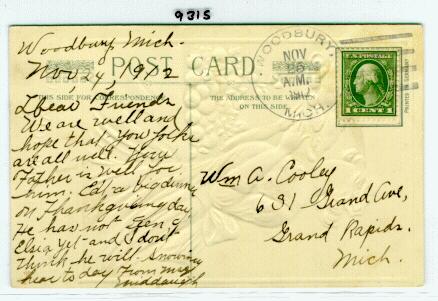 9315
Woodbury Mich.
Nov 24, 1912
POST CARD.
THIS SIDE FOR CORRESPONDENCE
THE ADDRESS TO BE WRITTEN ON THIS SIDE.
Dear Friends
We are well and
hope that you folks
are all well. Your
Father is well for
him. Eat a big dinner
on Thanksgiving day
He has not
Elsia yet and I don't
think he will. Snowing
hear to day From Mrs
Middaugh
WOODBURY,
NOV
A.M.
MICH.
U.S. POSTAGE
1 CENT 1
PRINTED IN GERMANY
Wm A. Cooley
631 Grand Ave,
Grand Rapids.
Mich.